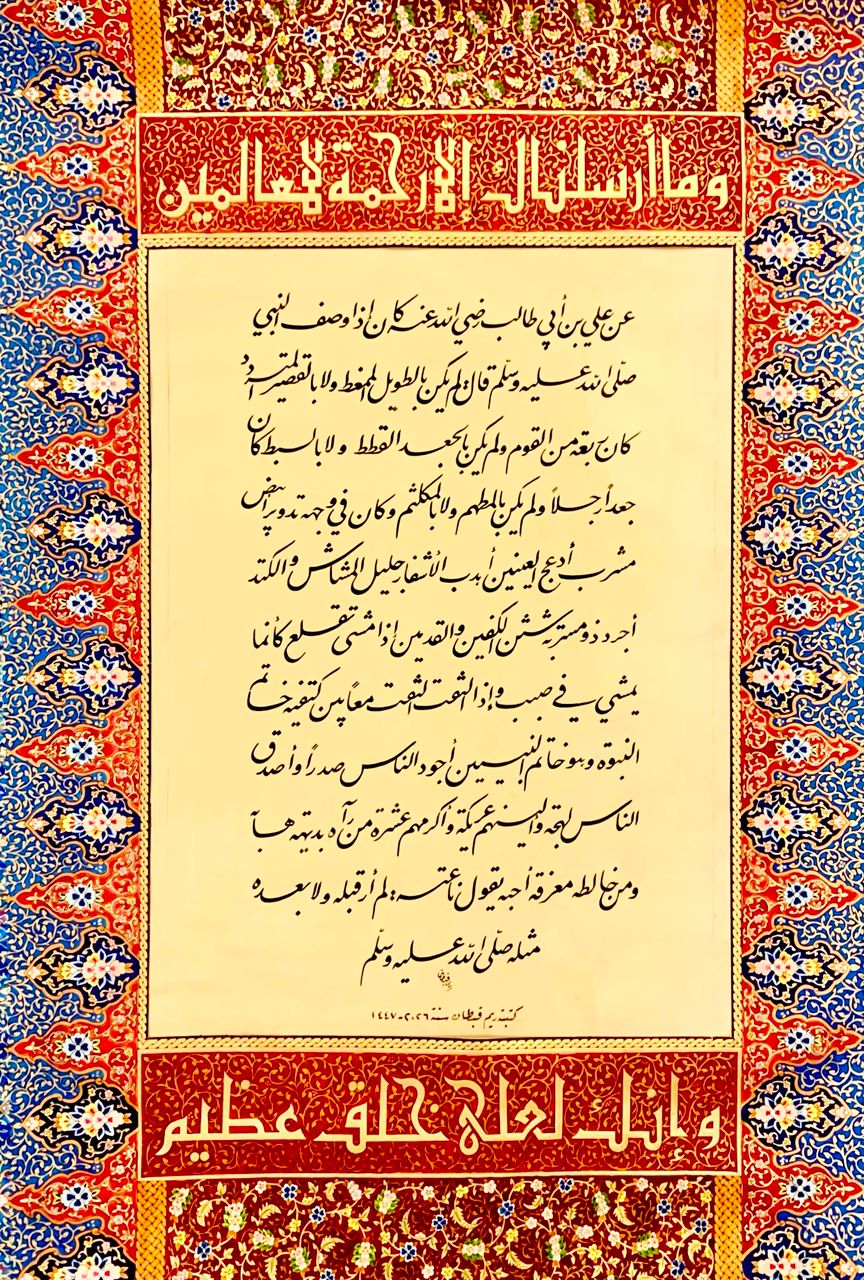 وما أرسلناك إلا رحمة للعالمين
عن علي بن أبي طالب رضي الله عنه كان إذا وصف النبي
صلى الله عليه وسلم قال: لم يكن بالطويل الممغط ولا بالقصير المتردد
كان ربعة من القوم ولم يكن بالجعد القطط ولا بالسبط كان
جعداً رجلاً ولم يكن بالمطهم ولا بالمكلثم وكان في وجهه تدوير أبيض
مشرب أدعج العينين أهدب الأشفار جليل المشاش والكتد
أجرد ذو مسربة شثن الكفين والقدمين إذا مشى تقلع كأنما
يمشي في صبب وإذا التفت التفت معاً بين كتفيه خاتم
النبوة وهو خاتم النبيين أجود الناس صدراً وأصدق
الناس لهجة وألينهم عريكة وأكرمهم عشرة من رآه بديهة هابه
ومن خالطه معرفة أحبه يقول ناعته: لم أر قبله ولا بعده
مثله صلى الله عليه وسلم
كتبته ريم قبطان سنة ٢٠٢٦-١٤٤٧
وإنك لعلى خلق عظيم